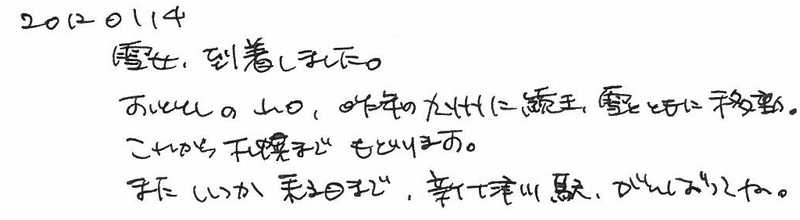 20120114
雪女、到着しました。
おととしの山口、昨年の九州に続き、雪とともに移動。
これから札幌までもどります。
またいつか来る日まで、新十津川駅、がんばってね。